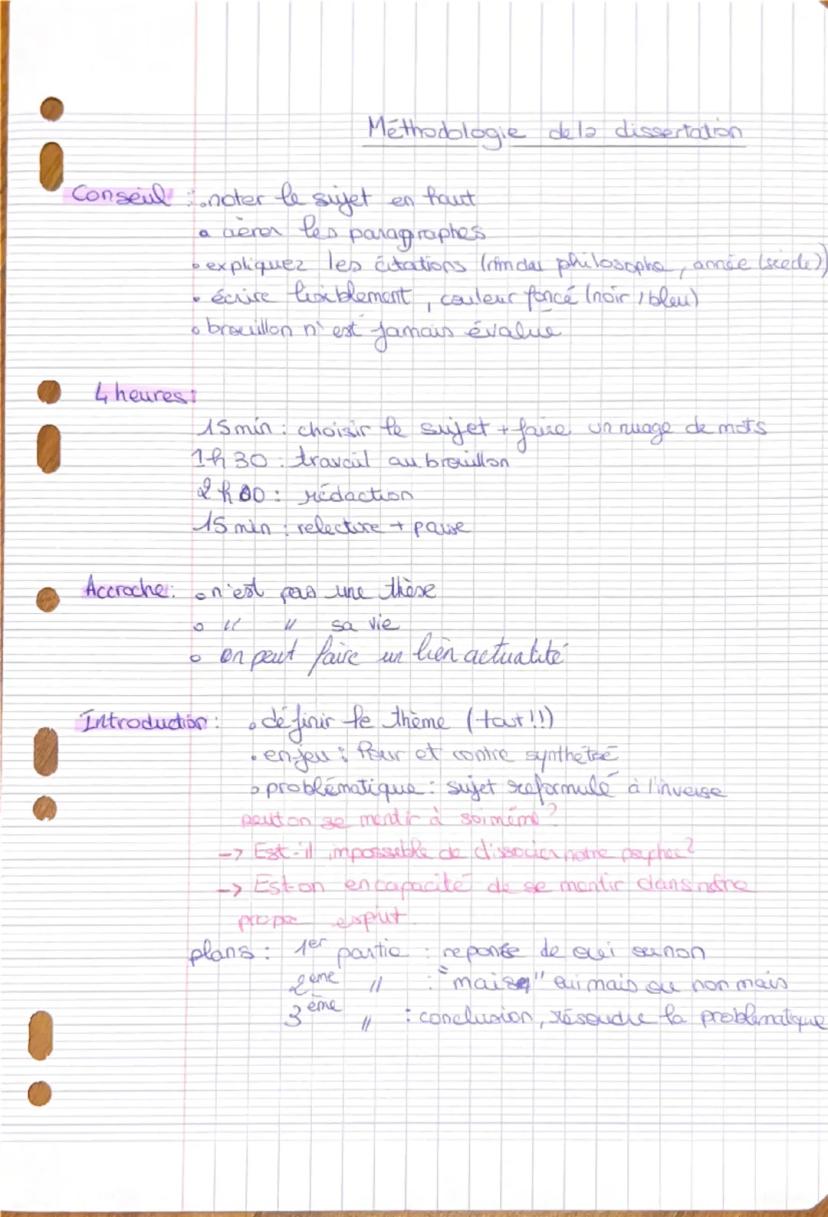 Méthodologie de la dissertation
Conseil : • noter le sujet en haut
• aérer les paragraphes
• expliquez les citations (nom du philosophe, année (siècle))
• écrire lisiblement, couleur foncé (noir / bleu)
• brouillon n'est jamais évalué
4 heures :
15 min : choisir le sujet + faire un nuage de mots
1h30 : travail au brouillon
2h00 : rédaction
15 min : relecture + pause
Accroche : • n'est pas une thèse
• " " sa vie
• on peut faire un lien actualité
Introduction : • définir le thème (tout !!)
• enjeu : Pour et contre synthétisé
• problématique : sujet reformulé à l'inverse
peut on se mentir à soi même ?
-> Est-il impossible de dissocier notre psyché ?
-> Est on en capacité de se mentir dans notre
propre esprit
plans : 1er partie : reponse de oui ou non
2ème " : "mais" oui mais ou non mais
3ème " : conclusion, résoudre la problématique